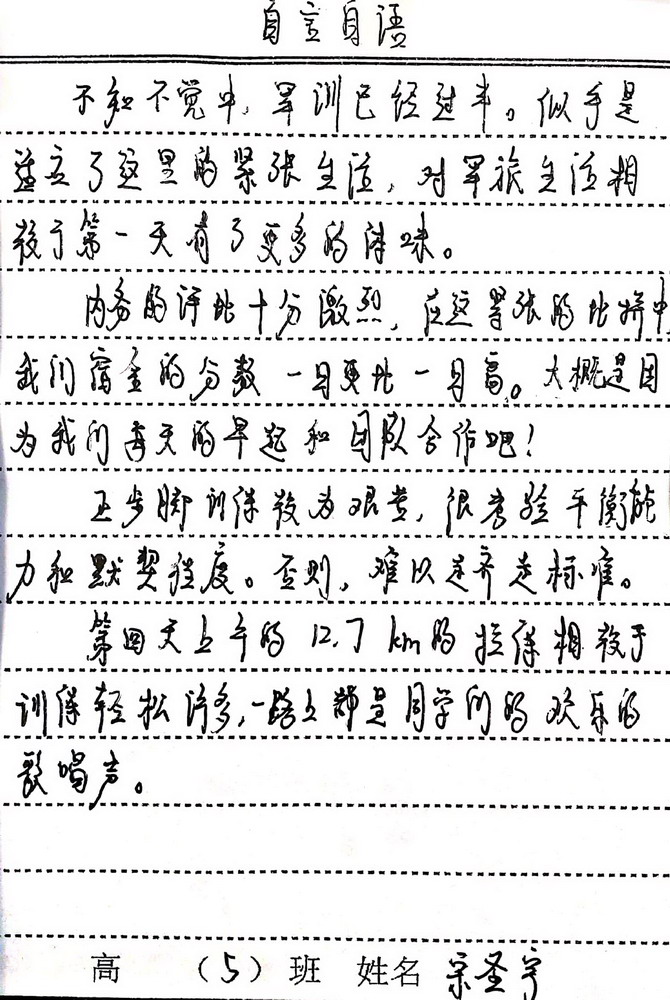 自言自语
不知不觉中，军训已经过半。似乎是
适应了这里的紧张生活，对军旅生活相
较于第一天有了更多的体味。
内务的评比十分激烈，在这紧张的比拼中
我们宿舍的分数一日更比一日高。大概是因
为我们每天的早起和团队合作吧！
正步脚训练较为艰苦，很考验平衡能
力和默契程度。否则，难以走齐走标准。
第四天上午的12.7km的拉练相较于
训练轻松许多，一路上都是同学们的欢乐的
歌唱声。
高 （5）班 姓名 宋圣宇